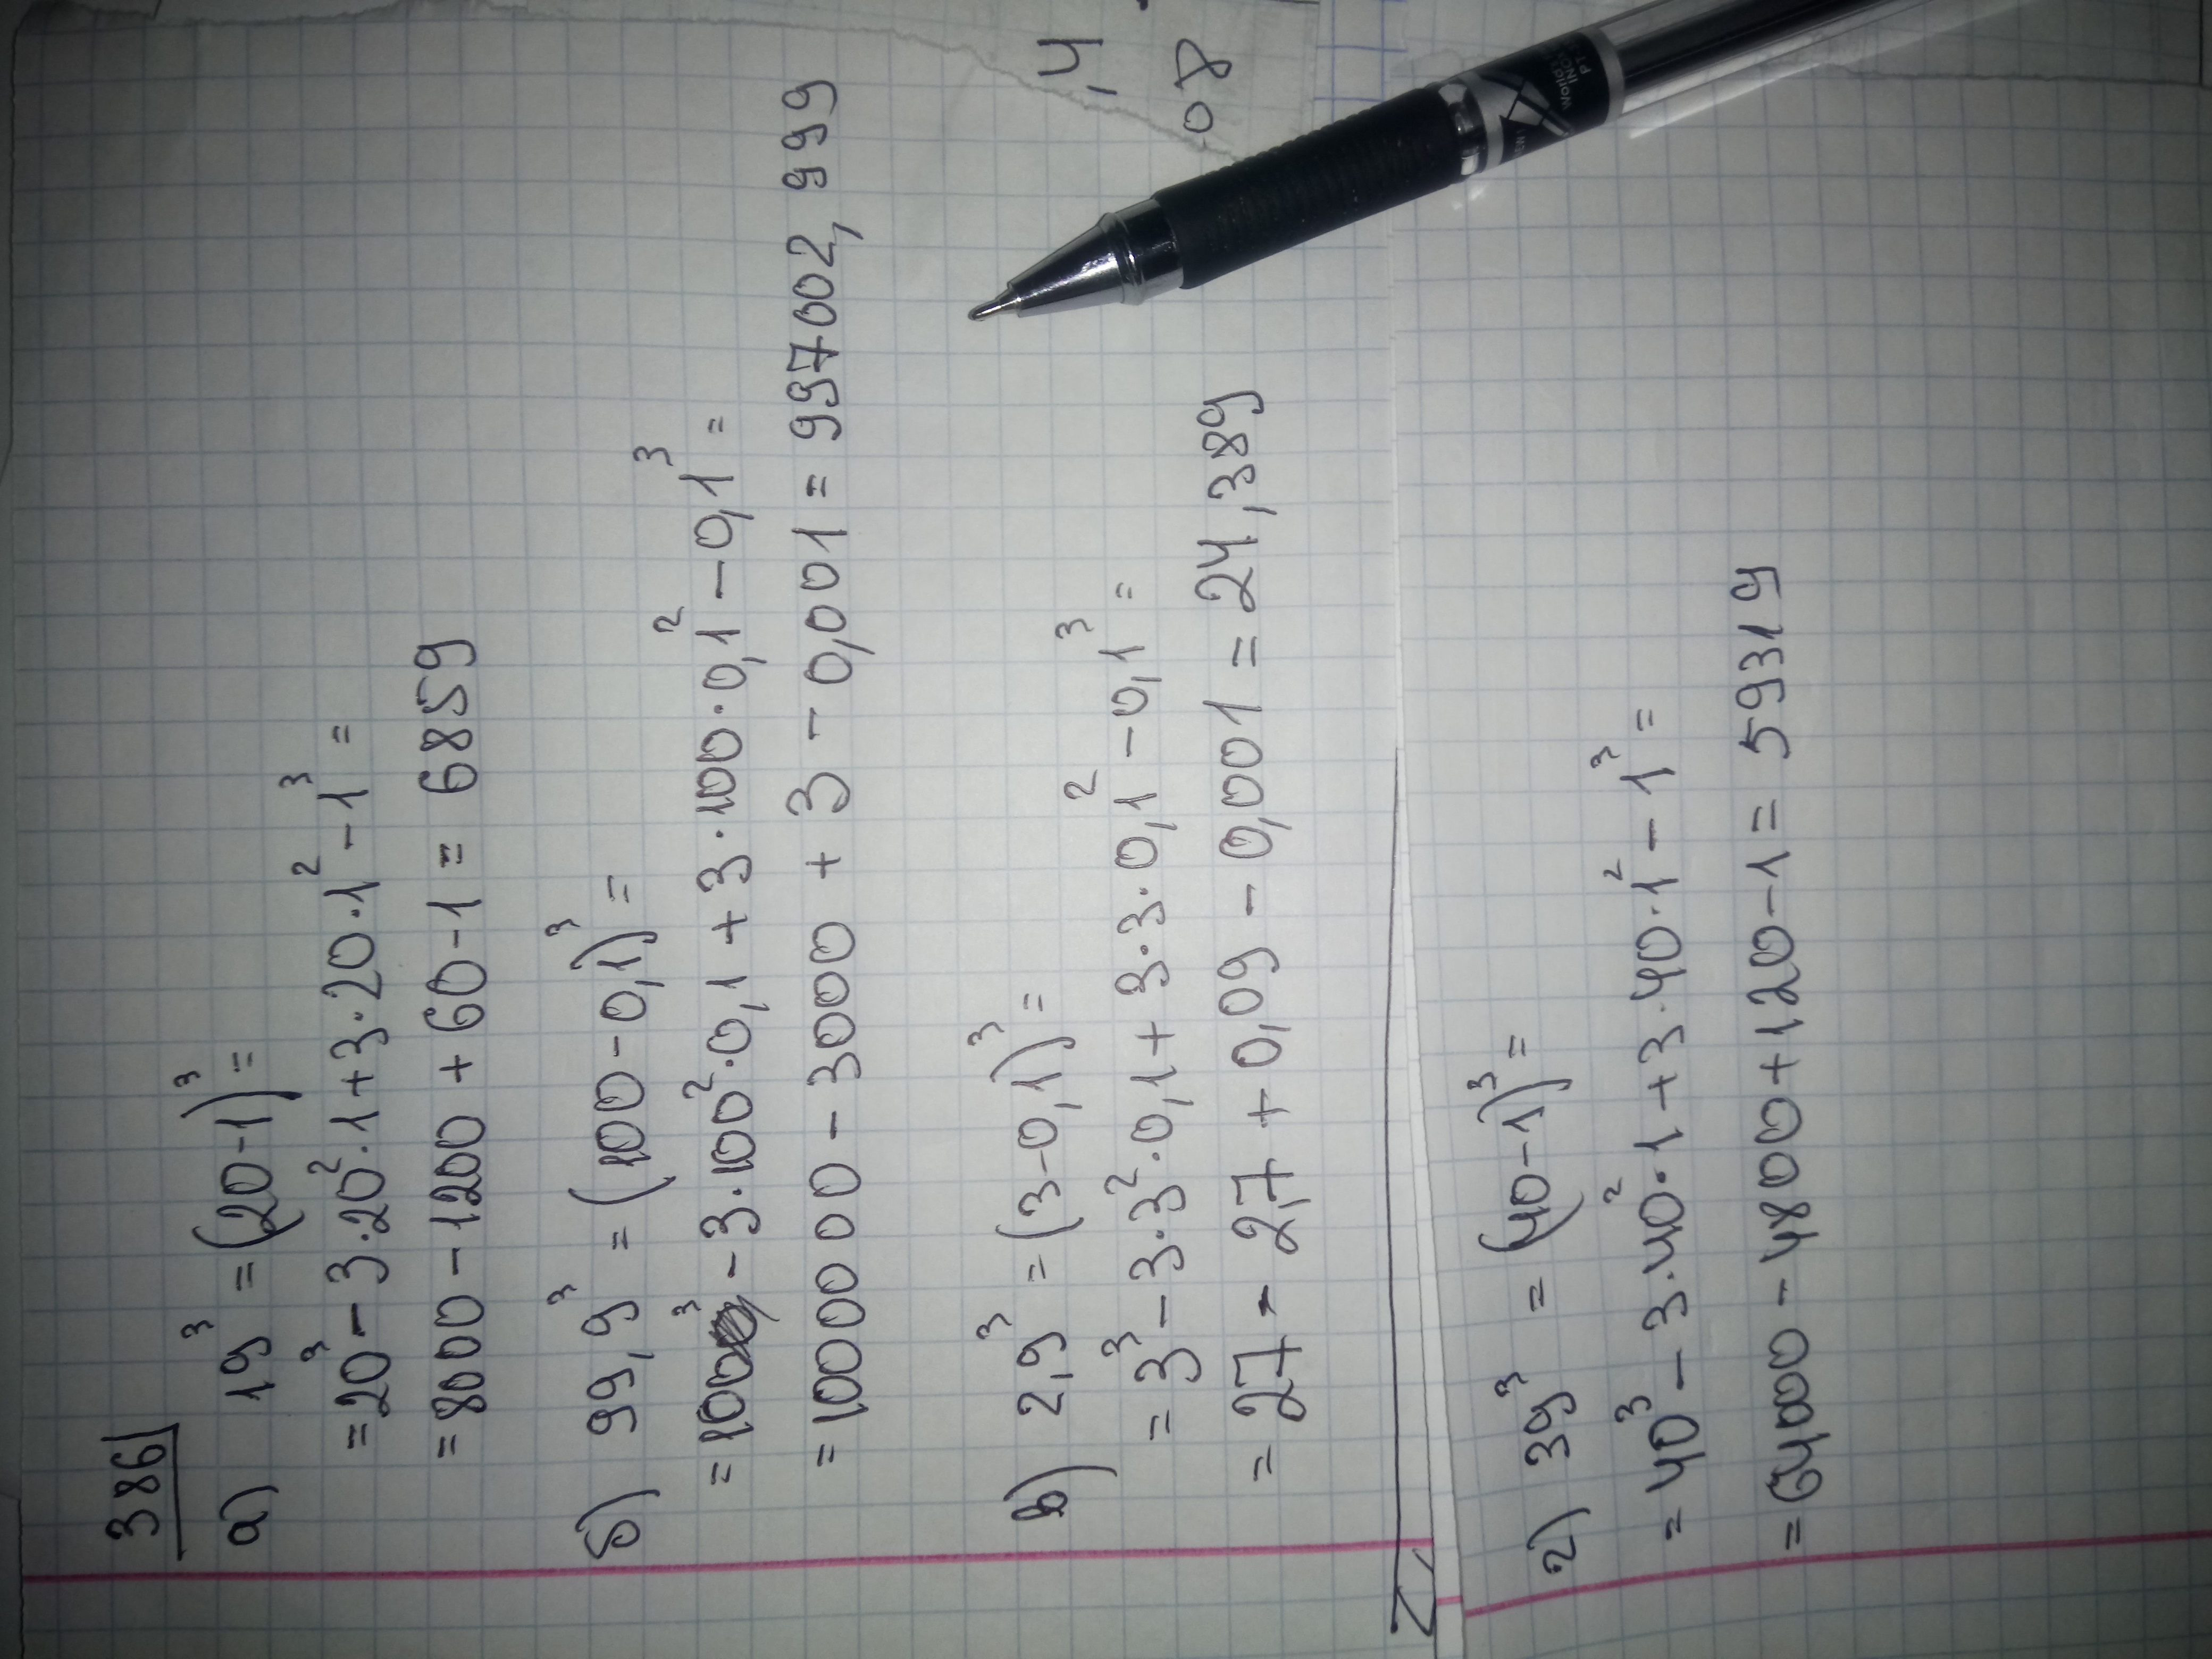 386
а) 19³ = (20-1)³ =
= 20³ - 3·20²·1 + 3·20·1² - 1³ =
= 8000 - 1200 + 60 - 1 = 6859
б) 99,9³ = (100 - 0,1)³ =
= 100³ - 3·100²·0,1 + 3·100·0,1² - 0,1³ =
= 1000000 - 3000 + 3 - 0,001 = 997002,999
в) 2,9³ = (3-0,1)³ =
= 3³ - 3·3²·0,1 + 3·3·0,1² - 0,1³ =
= 27 - 2,7 + 0,09 - 0,001 = 24,389
г) 39³ = (40-1)³ =
= 40³ - 3·40²·1 + 3·40·1² - 1³ =
= 64000 - 4800 + 120 - 1 = 59319
,4
08
World